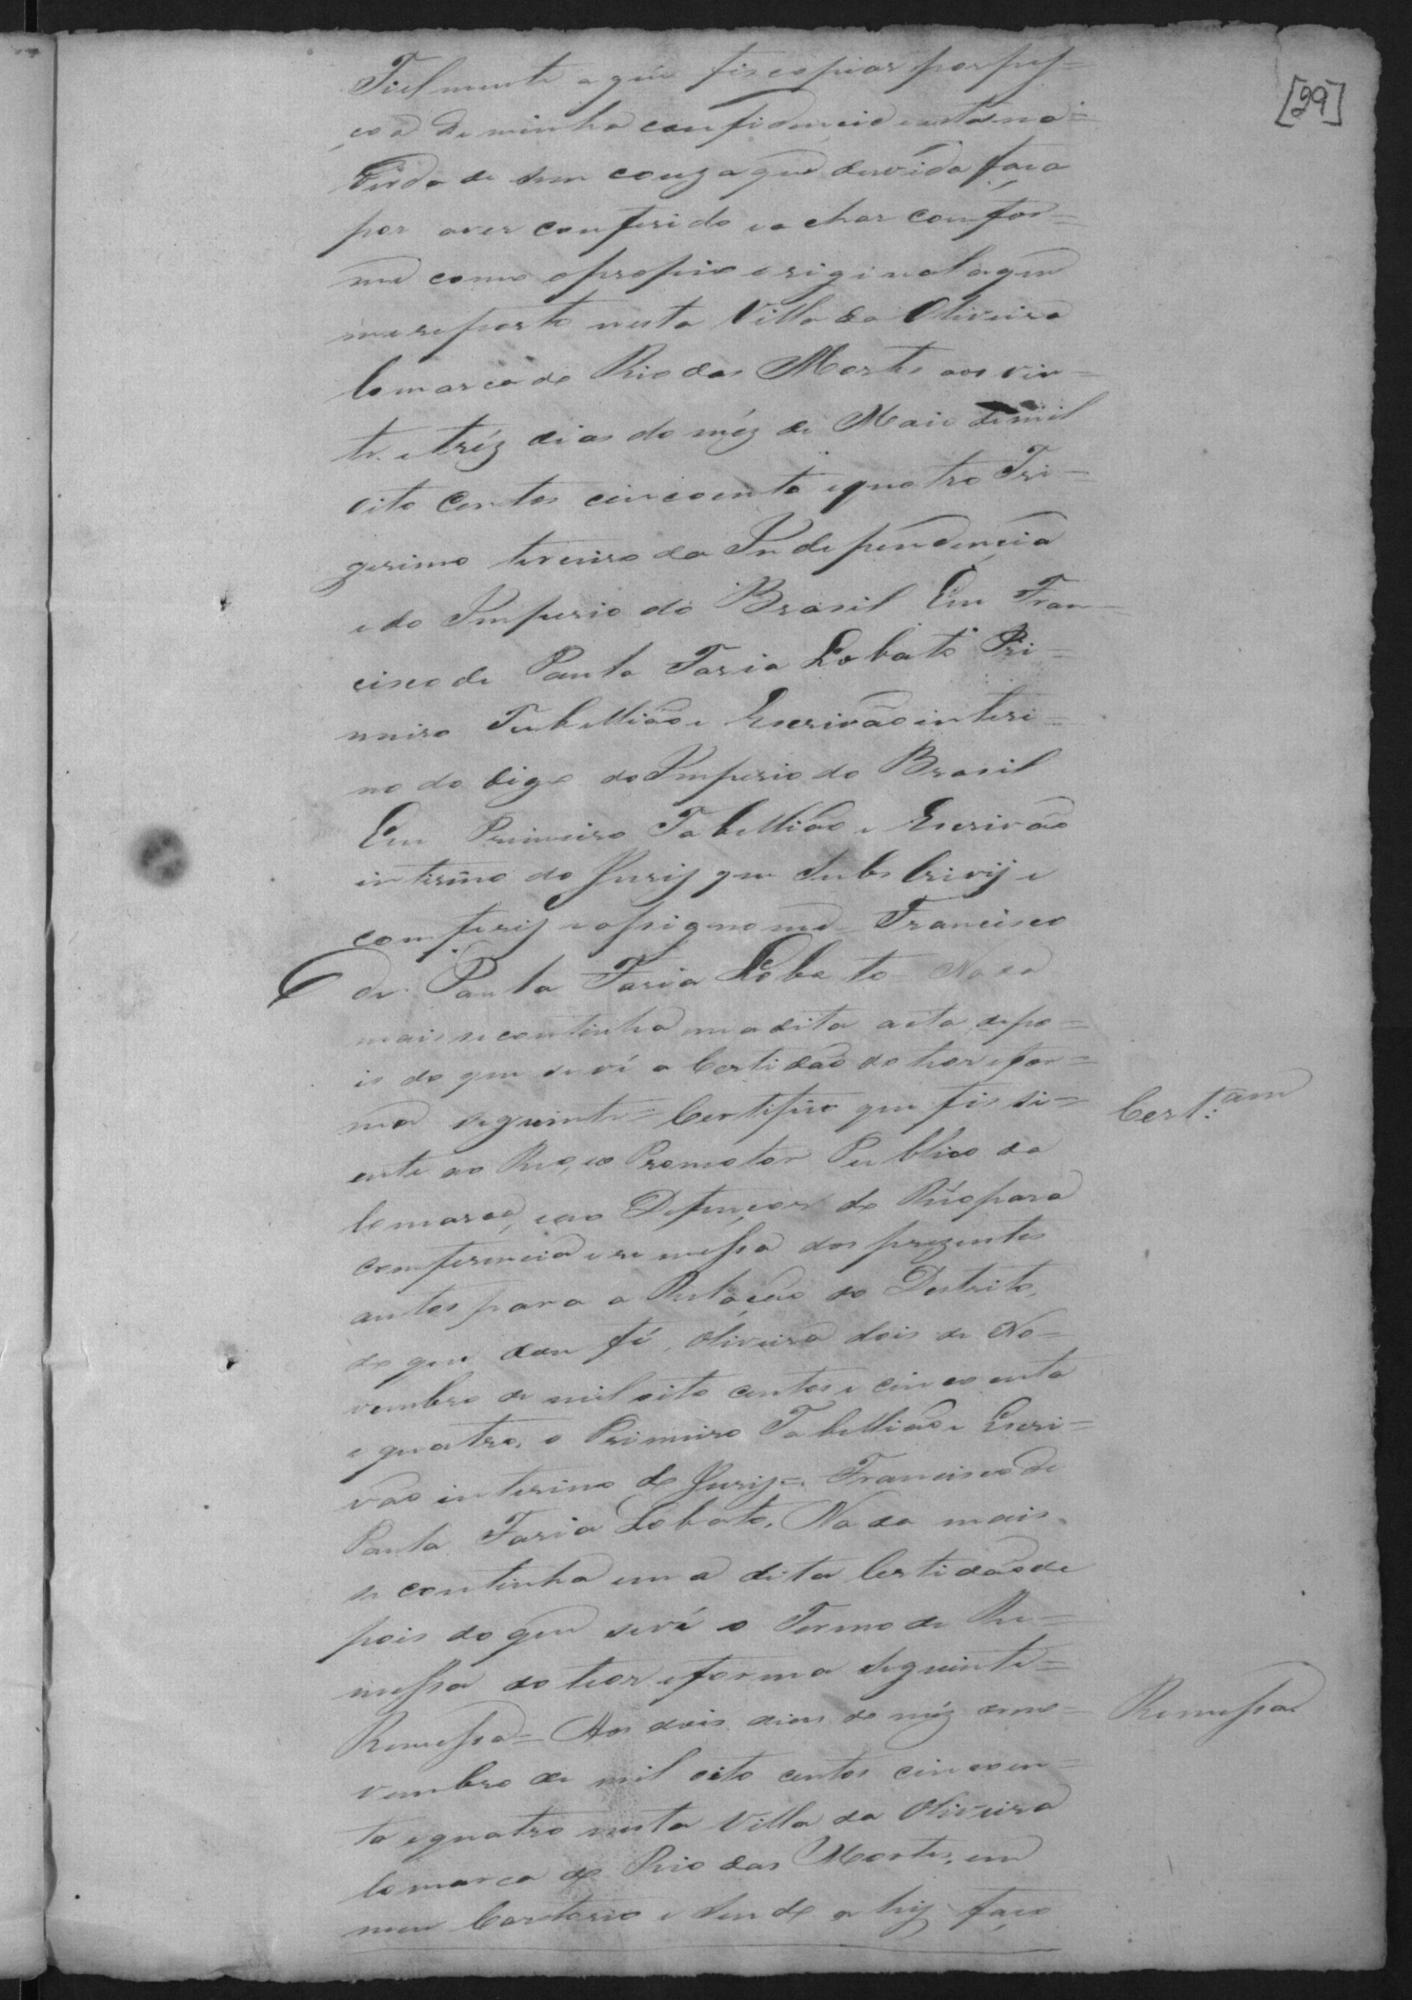 [29]
Fielmente aqui fis copiar por pes=
coa de minha confidencia esta na
verdade sem couza que duvida faca
por aver conferido e achar comfor=
me com o propio original a que
me reporto nesta Villa da Oliveira
Comarca do Rio das Mortes aos vin=
te e tréz dias do méz de Maio de mil
oito centos cincoenta e quatro Tri=
gesimo terceiro da Independencia
e do Imperio do Brasil Eu Fran=
cisco de Paula Faria Lobato Pri=
meiro Tabellião e Escrivão interi=
no do digo do Imperio do Brasil
Eu Primeiro Tabellião e Escrivão
interino do Jurij que Subscrivij e
comferij e assigno me Francisco
de Paula Faria Lobato Nada
mais se continha na dita acta depo=
is do que se vi a Certidão do theor e for=
ma seguinte= Certifico que fis si=
ente ao Reo, eo Promotor Publico da
Comarca, e ao Defençor do Réo para
comferencia e remessa dos prezentes
autos para a Relação do Destrito,
do que dou fé, Oliveira dois de No=
vembro de mil oito centos e cincoenta
e quatro, o Primeiro Tabellião e Escri=
vão interino do Jurij=, Francisco de
Paula Faria Lobato, Nada mais
se continha em a dita Certidão de
pois do que se vé o Termo de Re=
messa do theor e forma seguinte=
Remessa= Aos dois dias do méz de no=
vembro de mil oito centos cincoen=
ta e quatro nesta Villa da Oliveira
Comarca do Rio das Mortes, em
meu Cartorio e sendo ahij faço
Cert.am
Remessa